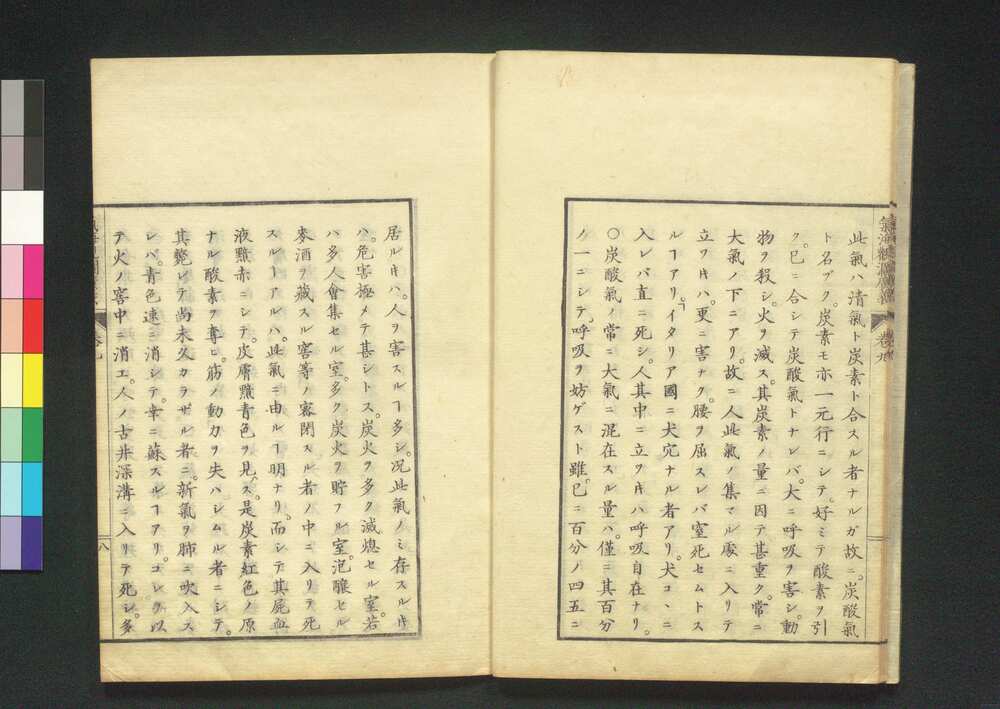 氣海觀瀾廣義 卷九
此氣ハ清氣ト炭素ト合スル者ナルガ故ニ。炭酸氣
ト名ヅク。炭素モ亦一元行ニシテ。好ミテ酸素ヲ引
ク。已ニ合シテ炭酸氣トナレバ。大ニ呼吸ヲ害シ。動
物ヲ殺シ。火ヲ滅ス。其炭素ノ量ニ因テ甚重ク。常ニ
大氣ノ下ニアリ。故ニ人此氣ノ集マル處ニ入リテ
立ツキハ。更ニ害ナク。腰ヲ屈スレバ窒死セムトス
ルヿアリ。イタリア國ニ犬穴ナル者アリ。犬コヽニ
入レバ直ニ死シ。人其中ニ立ツキハ呼吸自在ナリ。
〇炭酸氣ノ常ニ大氣ニ混在スル量ハ。僅ニ其百分
ノ一ニシテ。呼吸ヲ妨ゲスト雖。已ニ百分ノ四五ニ
居ルキハ。人ヲ害スルヿ多シ。况此氣ノミ存スルキ
ハ。危害極メテ甚シトス。炭火ヲ多ク滅熄セル室。若
ハ多人會集セル室。多ク炭火ヲ貯フル室。泡釀セル
麥酒ヲ藏スル窖等ノ密閉スル者ノ中ニ入リテ死
スルヿアルハ。此氣ニ由ルヿ明ナリ。而シテ其屍血
液黯赤ニシテ。皮膚黯青色ヲ見ス。是炭素紅色ノ原
ナル酸素ヲ奪ヒ。筋ノ動力ヲ失ハシムル者ニシテ。
其斃レテ尚未久カラザル者ニ。新氣ヲ肺ニ吹入ス
レバ。青色速ニ消シテ。幸ニ蘇スルヿアリ。コレヲ以
テ火ノ窖中ニ消エ。人ノ古井深溝ニ入リテ死シ。多
卷九
八